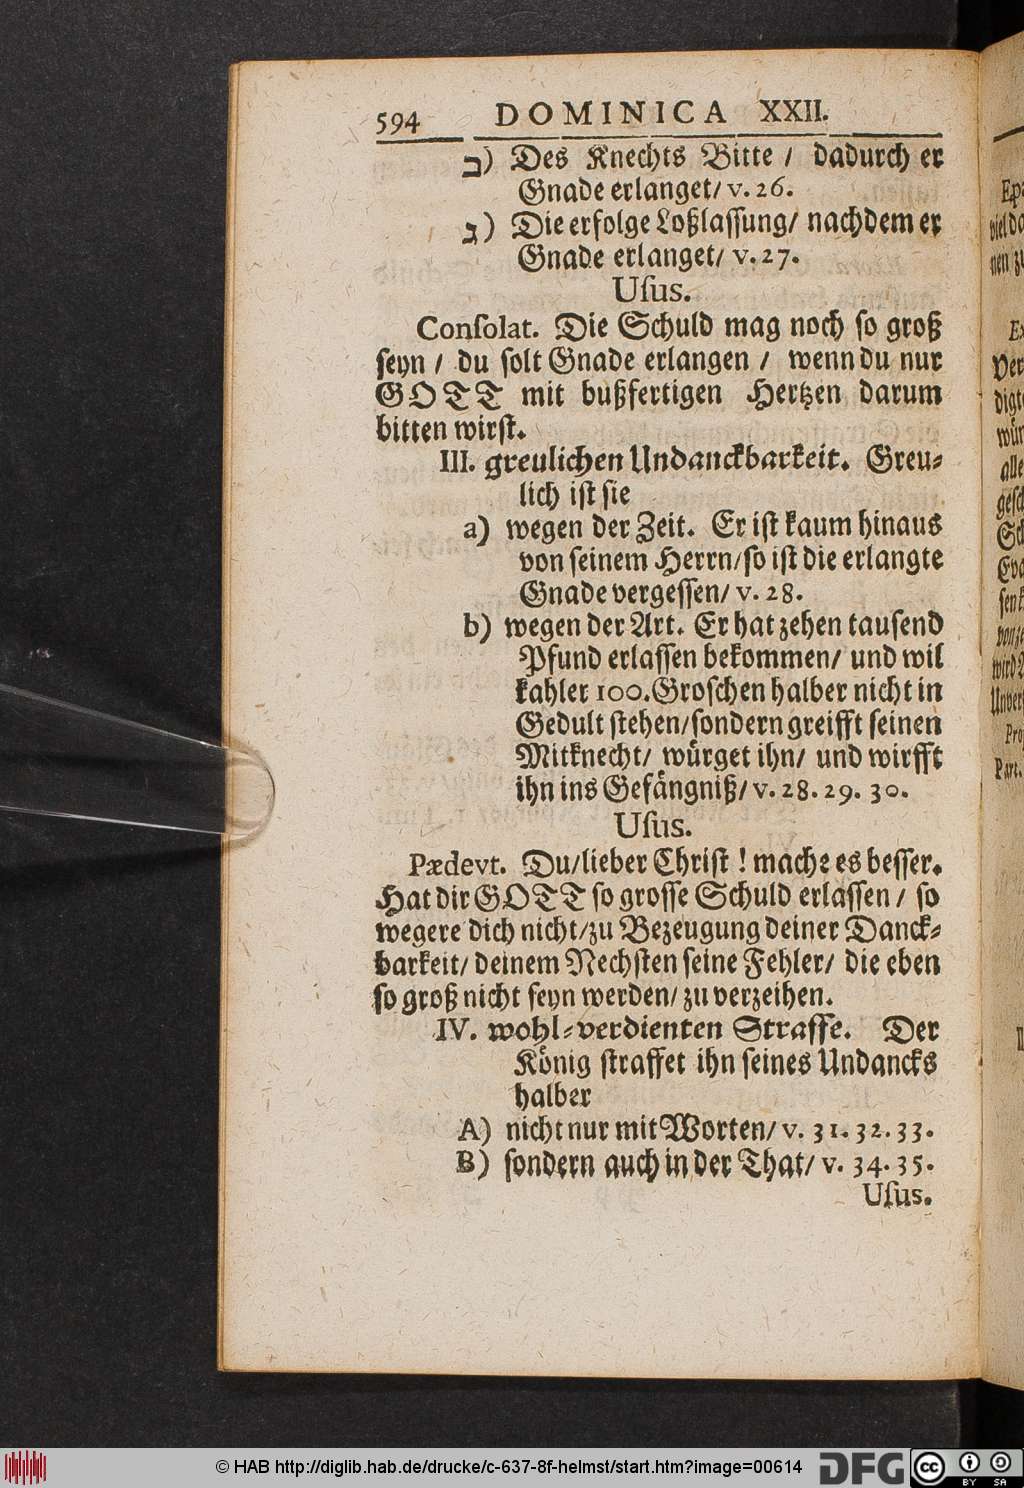 594 DOMINICA XXII.
ב) Des Knechts Bitte / dadurch er
Gnade erlanget/ v. 26.
ג) Die erfolge Loßlassung/ nachdem er
Gnade erlanget/ v. 27.
Uſus.
Conſolat. Die Schuld mag noch so groß
seyn / du solt Gnade erlangen / wenn du nur
GOTT mit bußfertigen Hertzen darum
bitten wirst.
III. greulichen Undanckbarkeit. Greu-
lich ist sie
a) wegen der Zeit. Er ist kaum hinaus
von seinem Herrn/so ist die erlangte
Gnade vergessen/ v. 28.
b) wegen der Art. Er hat zehen tausend
Pfund erlassen bekommen/ und wil
kahler 100. Groschen halber nicht in
Gedult stehen/sondern greifft seinen
Mitknecht/ würget ihn/ und wirfft
ihn ins Gefängniß/ v. 28. 29. 30.
Uſus.
Pædevt. Du/lieber Christ! mache es besser.
Hat dir GOTT so grosse Schuld erlassen / so
wegere dich nicht/zu Bezeugung deiner Danck-
barkeit/ deinem Nechsten seine Fehler/ die eben
so groß nicht seyn werden/ zu verzeihen.
IV. wohl-verdienten Straffe. Der
König straffet ihn seines Undancks
halber
A) nicht nur mit Worten/ v. 31. 32. 33.
B) sondern auch in der That/ v. 34. 35.
Uſus.
© HAB http://diglib.hab.de/drucke/c-637-8f-helmst/start.htm?image=00614
DFG
cc BY SA